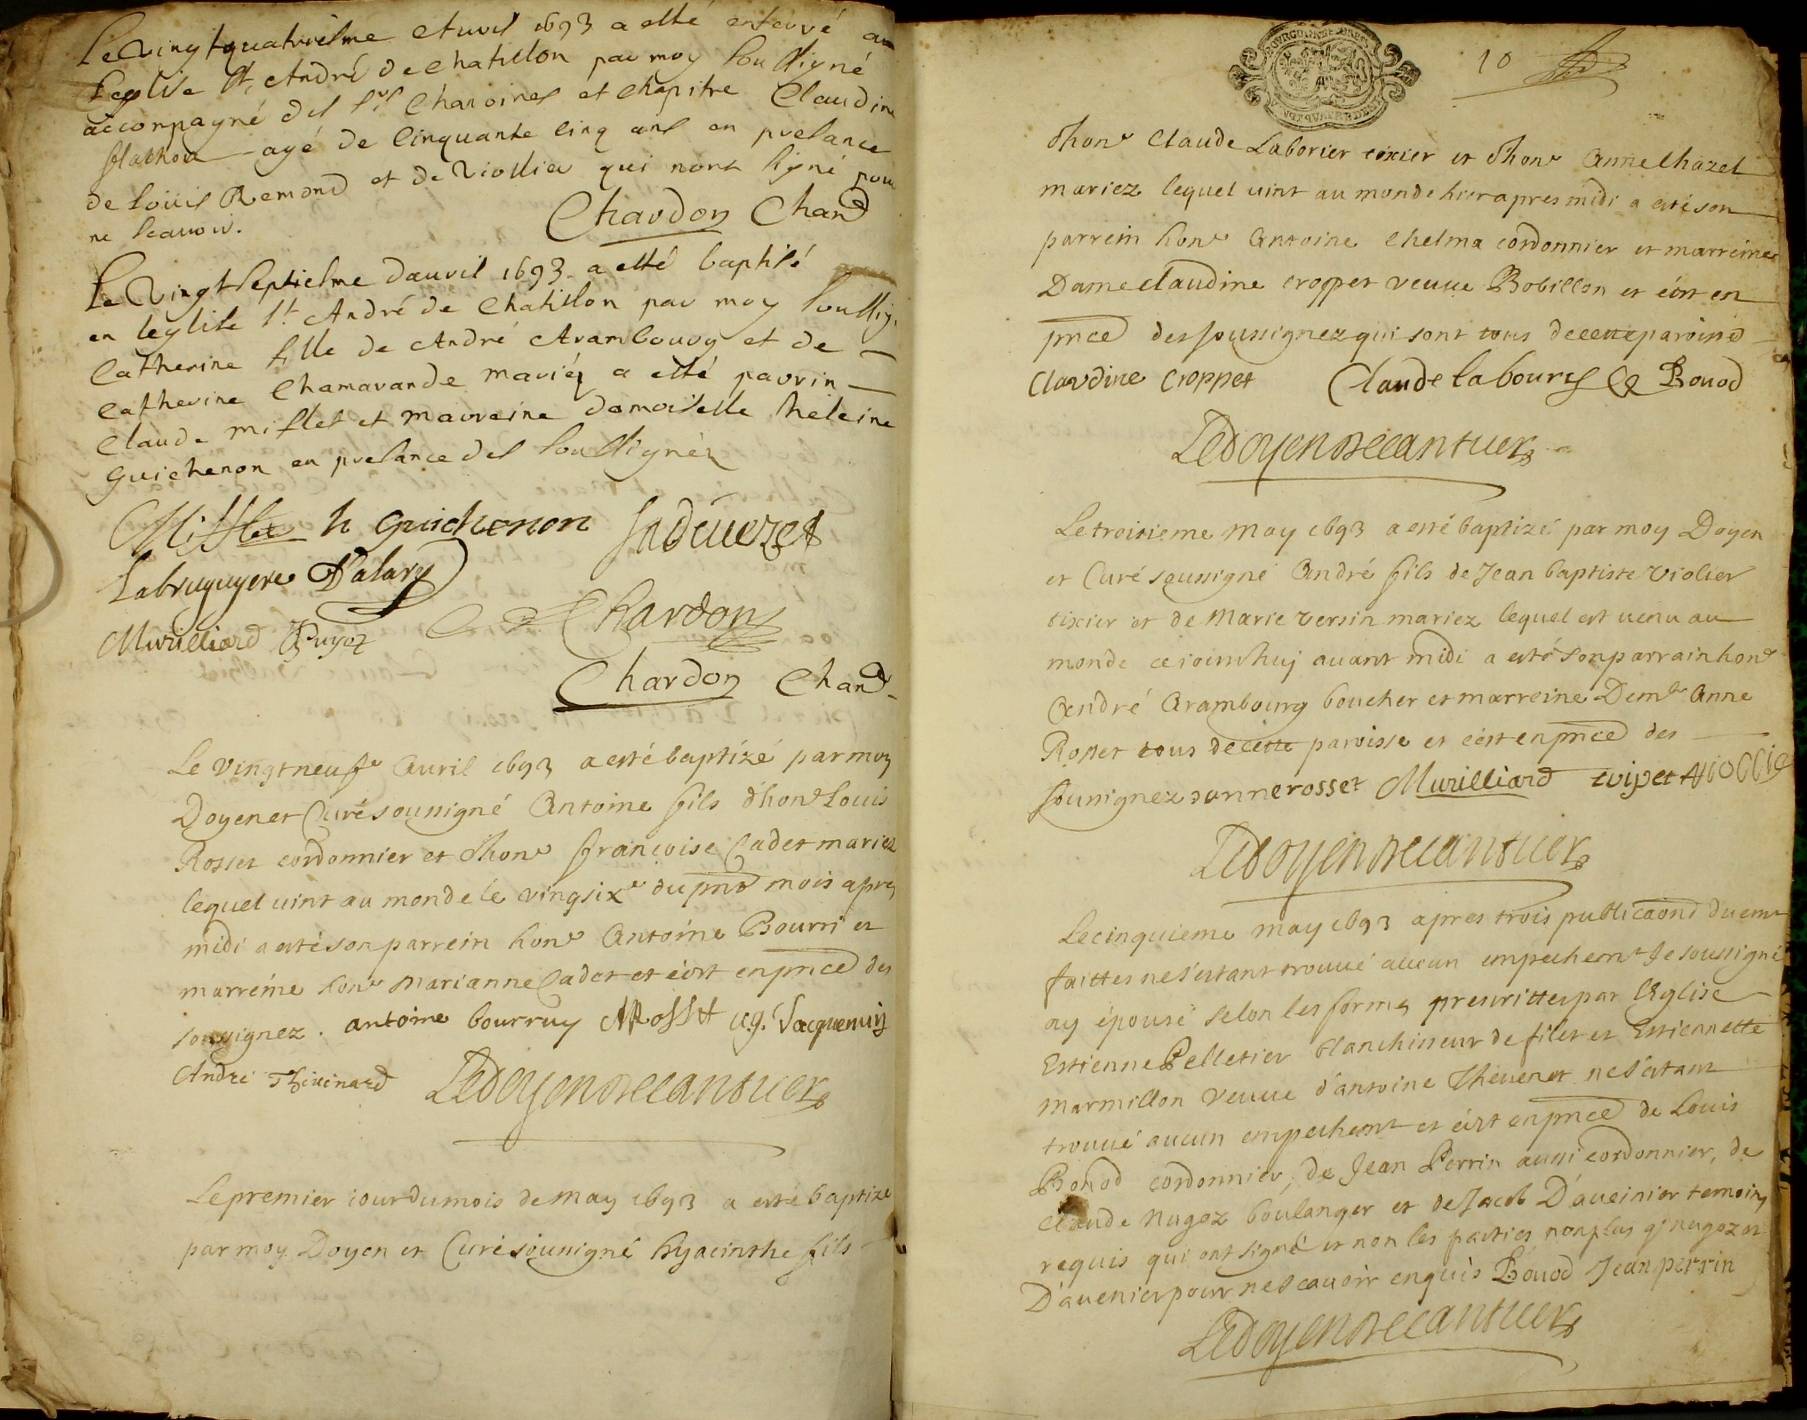 Le Vingtquatriesme Avvril 1693 a esté enterré en
leglise St André de Chatillon par moy soussigné
accompagné des Srs Chanoines et Chapitre Claudine
agé de Cinquante cinq ans en presance
de Louis Remond et de Viollier qui nont signé pour
ne scauoir.
Chardon Chane
Le Vingtseptiesme dauvril 1693 a esté baptisé
en leglise St André de Chatillon par moy soussig.
Catherine fille de André Arambourg et de
Catherine Chamarande mariéz a esté parrin
Claude Mifflet et marreine damoiselle heleine
Guichenon en presance des soussignéz
h guichenon
Labruyuyere Dalary
Chardon
Muvilliard Puget
Chardon Chane
Le vingtneufe Avril 1693 a esté baptizé par moy
Doyen et Curé sousigné Antoine fils d'hone Louis
Rosset cordonnier et d'hone françoise Cadet mariez
lequel vint au monde le vingsixe du pnt mois apres
midi a esté son parrein hone Antoine Bourri et
marréine hone Marianne Cadet et c'est en pnce des
sousignez. antoine bourruy ARosset c.g. Jacquemin
André Thivinard Le doyen Decantuer
Le premier iour du mois de may 1693 a esté baptizé
par moy Doyen et Curé sousigné hyacinthe fils
10
d'hone Claude Laborier tixier et d'hone Anne Chazel
mariez lequel vint au monde hier apres midi a esté son
parrein hone Antoine Chelma cordonnier et marreine
Dame Claudine croppet veuve Bobillon et c'est en
pnce des soussignez qui sont tous de cette paroisse
Claudine Croppet Claude labourés Bouod
Le doyen Decantuer
Le troisieme may 1693 a esté baptizé par moy Doyen
et Curé sousigné André fils de Jean baptiste Violier
tixier et de Marie versin mariez lequel est venu au
monde ce iourdhuj avant midi a esté son parrain hone
André Arambourg boucher et marreine Demle Anne
Rosset tous de cette paroisse et c'est en pnce des
sousignez anne rosset Muvilliard
Le doyen Decantuer
Le cinquieme may 1693 apres trois publicaons duemt
faittes ne s'estant trouvé aucun empechemt Je sousigné
ay épousé selon les formes prescrittes par l'Eglise
Estienne Pelletier blanchisseur de filet et Estiennette
Marmillon veuve d'antoine Thevenet ne s'estant
trouvé aucun empechemt et c'est en pnce de Louis
Bouod cordonnier, de Jean Perrin aussi cordonnier, de
Claude nugoz boulanger et de Jacob D'aveinier temoins
requis qui ont signé et non les parties non plus q nugoz et
D'avenier pour ne scavoir enquis Bouod Jean perrin
Le doyen Decantuer